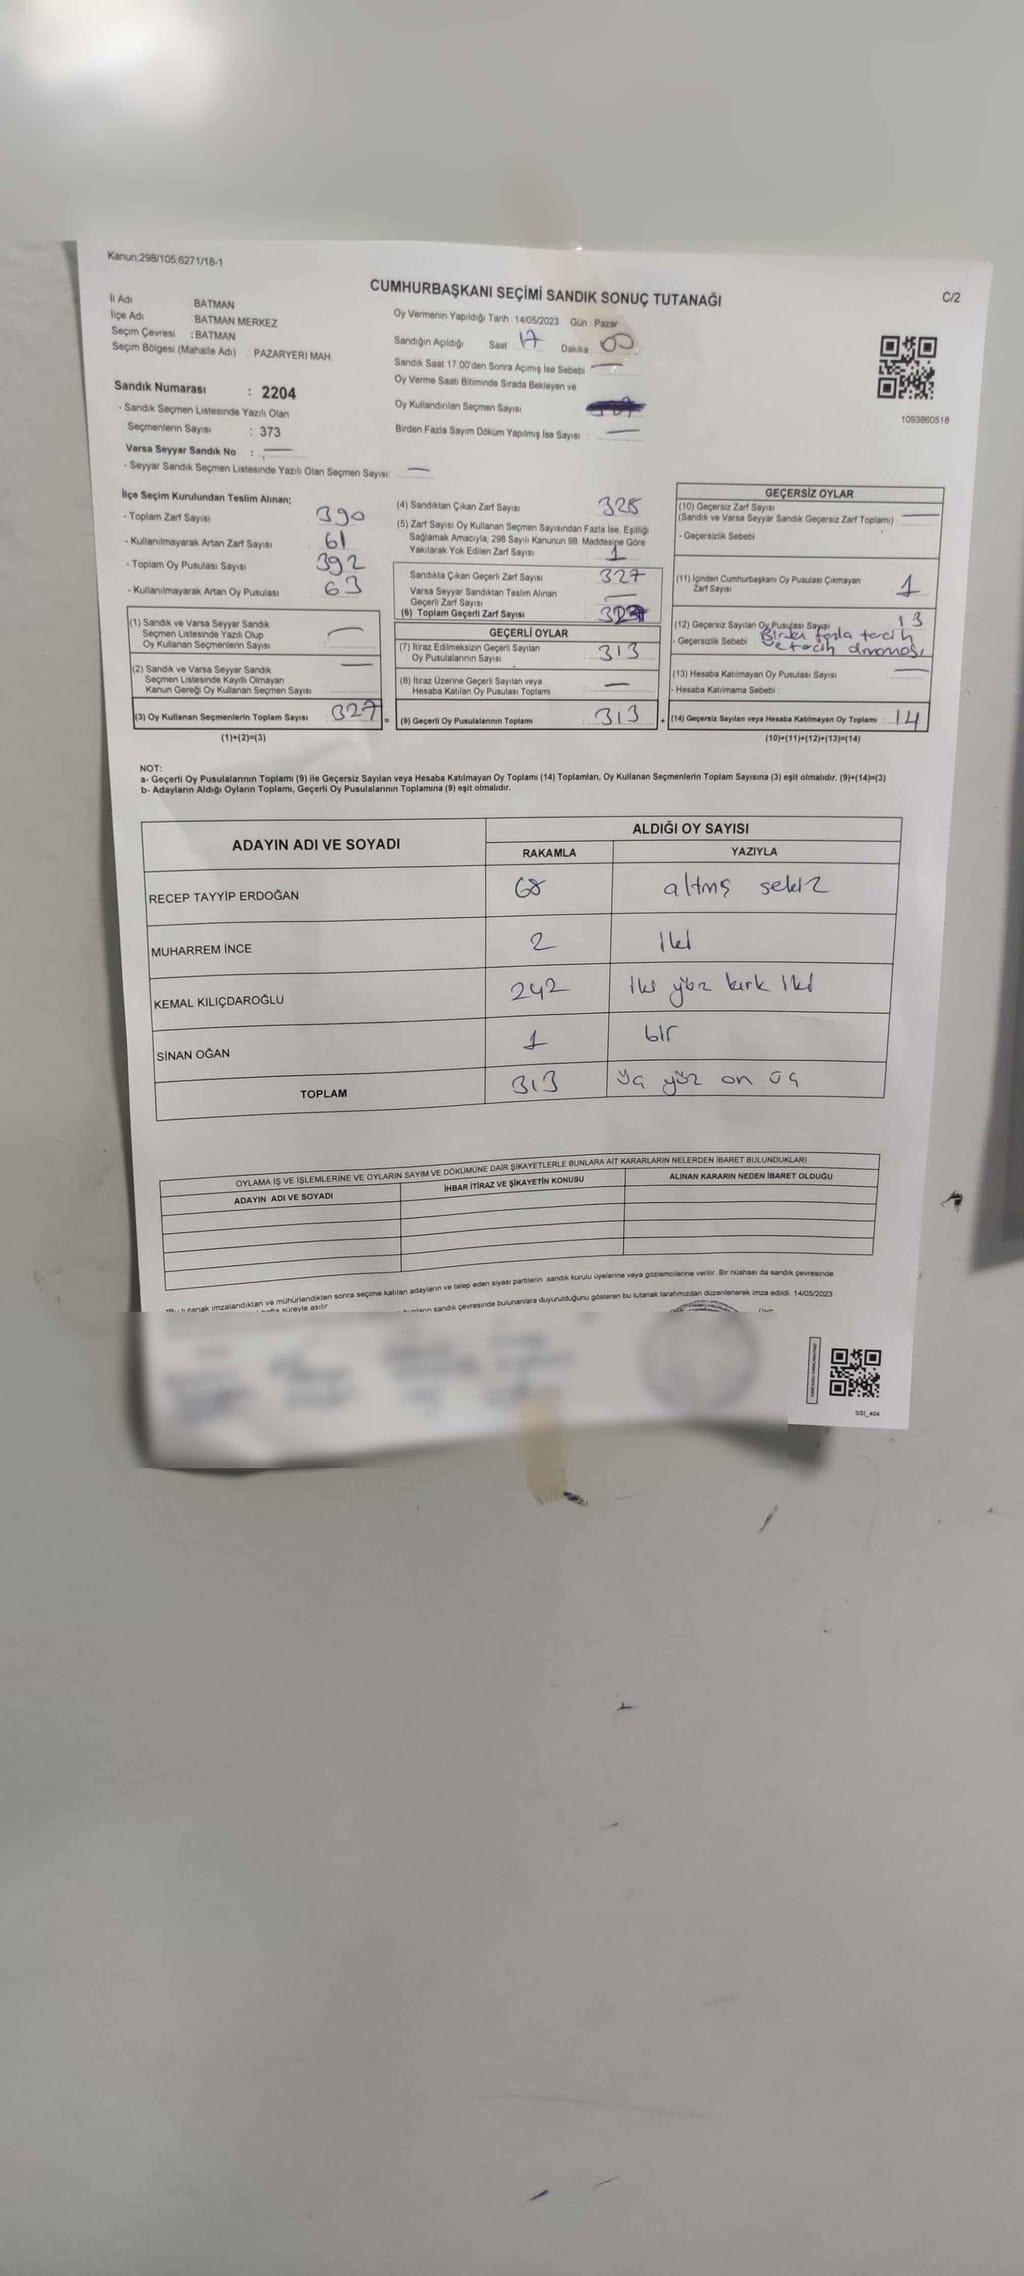 Kanun;298/105;6271/18-1
CUMHURBAŞKANI SEÇİMİ SANDIK SONUÇ TUTANAĞI
C/2
İl Adı : BATMAN
İlçe Adı : BATMAN MERKEZ
Seçim Çevresi : BATMAN
Seçim Bölgesi (Mahalle Adı) : PAZARYERİ MAH.
Oy Vermenin Yapıldığı Tarih 14/05/2023 Gün : Pazar
Sandığın Açıldığı Saat 17 Dakika 00
Sandık Saat 17:00'den Sonra Açımış İse Sebebi —
Oy Verme Saati Bitiminde Sırada Bekleyen ve
Oy Kullandırılan Seçmen Sayısı
Birden Fazla Sayım Döküm Yapılmış İse Sayısı : —
1093860518
Sandık Numarası : 2204
- Sandık Seçmen Listesinde Yazılı Olan
Seçmenlerin Sayısı : 373
Varsa Seyyar Sandık No : —
- Seyyar Sandık Seçmen Listesinde Yazılı Olan Seçmen Sayısı: —
İlçe Seçim Kurulundan Teslim Alınan;
- Toplam Zarf Sayısı : 390
- Kullanılmayarak Artan Zarf Sayısı : 61
- Toplam Oy Pusulası Sayısı : 392
- Kullanılmayarak Artan Oy Pusulası : 63
(1) Sandık ve Varsa Seyyar Sandık
Seçmen Listesinde Yazılı Olup
Oy Kullanan Seçmenlerin Sayısı : —
(2) Sandık ve Varsa Seyyar Sandık
Seçmen Listesinde Kayıtlı Olmayan
Kanun Gereği Oy Kullanan Seçmen Sayısı : —
(3) Oy Kullanan Seçmenlerin Toplam Sayısı : 327
(1)+(2)=(3)
(4) Sandıktan Çıkan Zarf Sayısı : 328
(5) Zarf Sayısı Oy Kullanan Seçmen Sayısından Fazla İse, Eşitliği
Sağlamak Amacıyla, 298 Sayılı Kanunun 98. Maddesine Göre
Yakılarak Yok Edilen Zarf Sayısı : 1
Sandıkta Çıkan Geçerli Zarf Sayısı : 327
Varsa Seyyar Sandıktan Teslim Alınan
Geçerli Zarf Sayısı : —
(6) Toplam Geçerli Zarf Sayısı : 327
GEÇERLİ OYLAR
(7) İtiraz Edilmeksizin Geçerli Sayılan
Oy Pusulalarının Sayısı : 313
(8) İtiraz Üzerine Geçerli Sayılan veya
Hesaba Katılan Oy Pusulası Toplamı : —
= (9) Geçerli Oy Pusulalarının Toplamı : 313
GEÇERSİZ OYLAR
(10) Geçersiz Zarf Sayısı
(Sandık ve Varsa Seyyar Sandık Geçersiz Zarf Toplamı) : —
- Geçersizlik Sebebi :
(11) İçinden Cumhurbaşkanı Oy Pusulası Çıkmayan
Zarf Sayısı : 1
(12) Geçersiz Sayılan Oy Pusulası Sayısı : 13
- Geçersizlik Sebebi : fazla tercih
(13) Hesaba Katılmayan Oy Pusulası Sayısı : —
- Hesaba Katılmama Sebebi :
+ (14) Geçersiz Sayılan veya Hesaba Katılmayan Oy Toplamı : 14
(10)+(11)+(12)+(13)=(14)
NOT:
a- Geçerli Oy Pusulalarının Toplamı (9) ile Geçersiz Sayılan veya Hesaba Katılmayan Oy Toplamı (14) Toplamları, Oy Kullanan Seçmenlerin Toplam Sayısına (3) eşit olmalıdır. (9)+(14)=(3)
b- Adayların Aldığı Oyların Toplamı, Geçerli Oy Pusulalarının Toplamına (9) eşit olmalıdır.
ADAYIN ADI VE SOYADI ALDIĞI OY SAYISI
RAKAMLA YAZIYLA
RECEP TAYYİP ERDOĞAN 68 altmış sekiz
MUHARREM İNCE 2 iki
KEMAL KILIÇDAROĞLU 242 iki yüz kırk iki
SİNAN OĞAN 1 bir
TOPLAM 313 üç yüz on üç
OYLAMA İŞ VE İŞLEMLERİNE VE OYLARIN SAYIM VE DÖKÜMÜNE DAİR ŞİKAYETLERLE BUNLARA AİT KARARLARIN NELERDEN İBARET BULUNDUKLARI
ADAYIN ADI VE SOYADI İHBAR İTİRAZ VE ŞİKAYETİN KONUSU ALINAN KARARIN NEDEN İBARET OLDUĞU
tutanak imzalandıktan ve mühürlendikten sonra seçime katılan adayların ve talep eden siyasi partilerin sandık kurulu üyelerine veya gözlemcilerine verilir. Bir nüshası da sandık çevresinde
süreyle asılır.
sandık çevresinde bulunanlara duyurulduğunu gösteren bu tutanak tarafımızdan düzenlenerek imza edildi. 14/05/2023
SSI_404